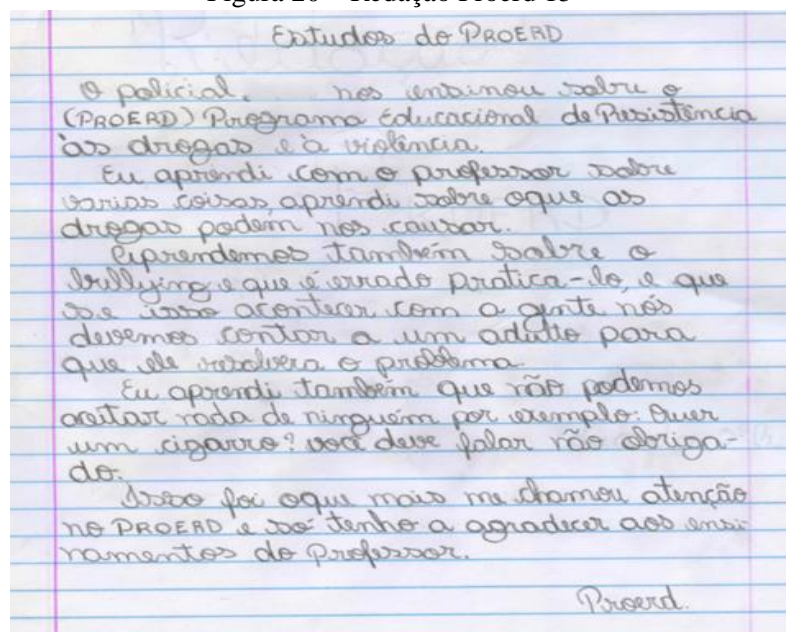 Figura 26 – Redação Proerd 15
Estudos do PROERD
O policial, nos ensinou sobre o
(PROERD) Programa Educacional de Resistência
às drogas e à violência.
Eu aprendi com o professor sobre
varias coisas, aprendi sobre oque as
drogas podem nos causar.
Aprendemos também sobre o
bullying e que é errado pratica-lo, e que
se isso acontecer com a gente nós
devemos contar a um adulto para
que ele resolvera o problema.
Eu aprendi também que não podemos
aceitar nada de ninguém por exemplo: Quer
um cigarro? você deve falar não obriga-
do.
Isso foi oque mais me chamou atenção
no PROERD e só tenho a agradecer aos ensi-
namentos do Professor.
Proerd.